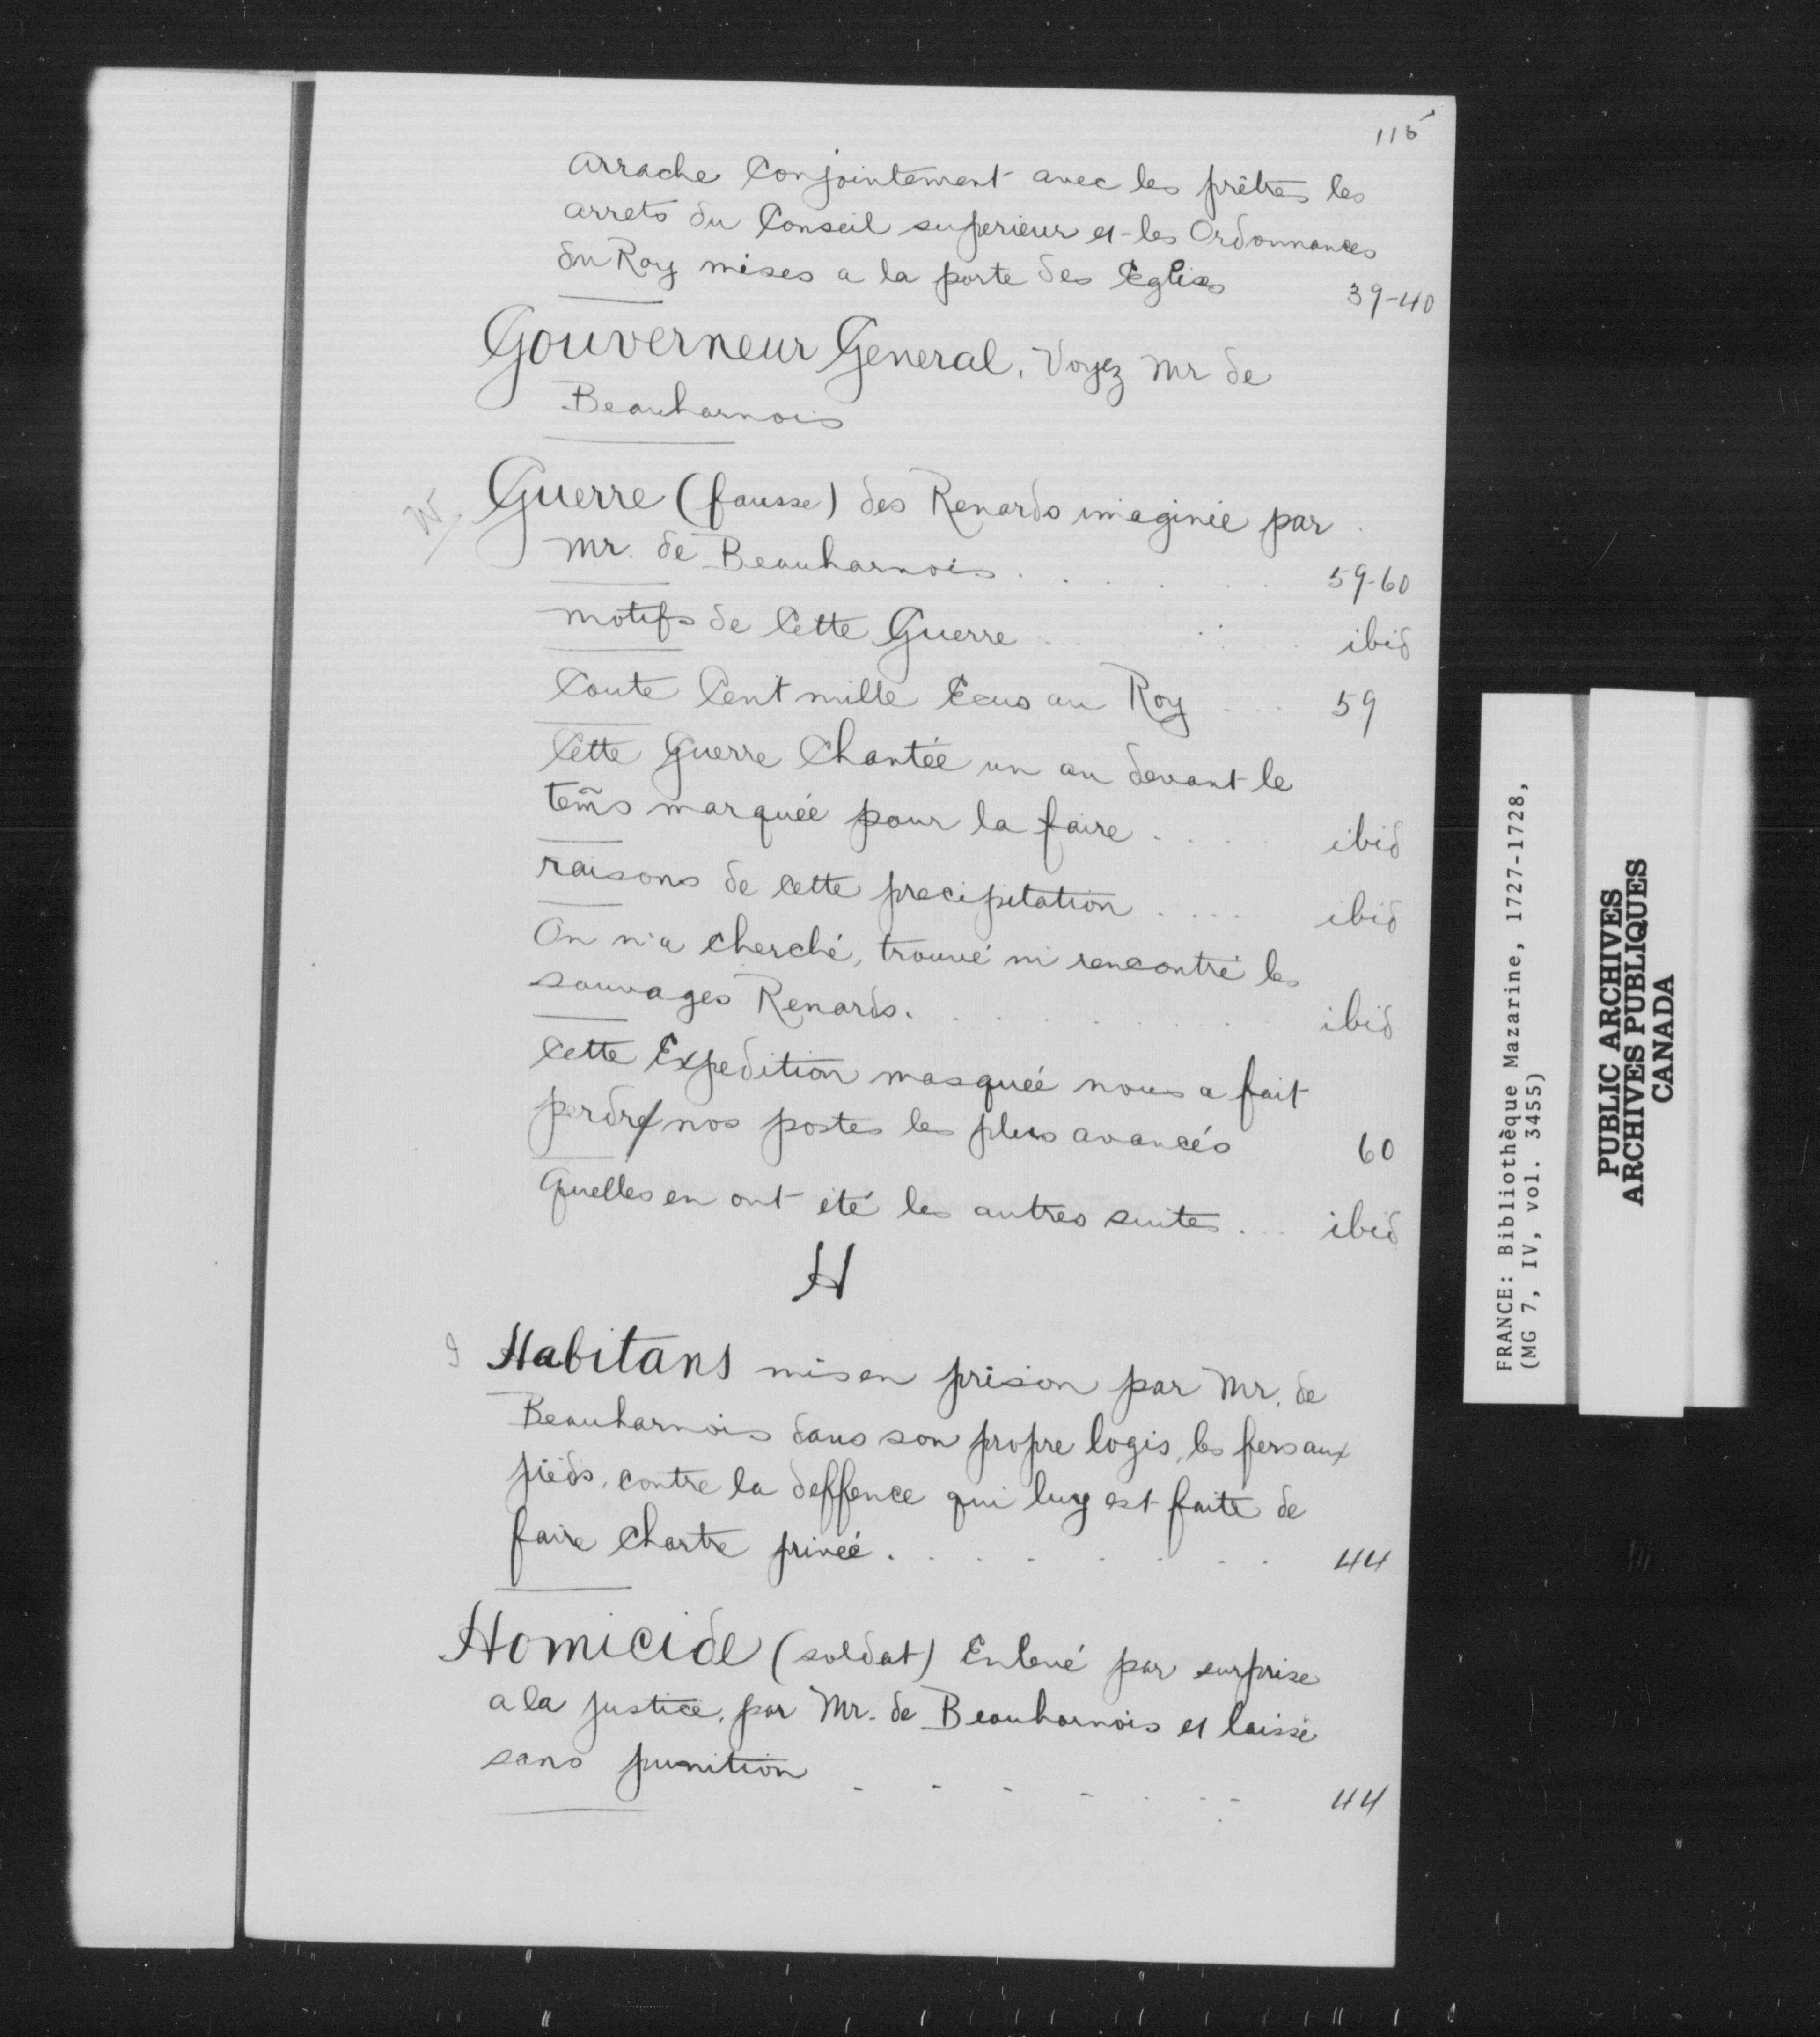 115
arrache Conjointement avec les prêtres les
arrets du Conseil superieur et les Ordonnances
du Roy mises a la porte des Eglises 39-40
Gouverneur General, Voyez Mr de
Beauharnois
Guerre (fausse) des Renards imaginée par
Mr. de Beauharnois . . . . . . 59-60
motifs de Cette Guerre . . . . ibid
Coute Cent mille Ecus au Roy . . . 59
Cette Guerre Chantée un an devant le
tem̃s marquée pour la faire . . . . . ibid
raisons de Cette precipitation . . . . . ibid
On n'a cherché, trouvé ni rencontré les
sauvages Renards. . . . . . . . . ibid
Cette Expedition masquée nous a fait
perdre nos postes les plus avancés 60
Quelles en ont été les autres suites . . . ibid
H
Habitans mis en prison par Mr. de
Beauharnois dans son propre logis, les fers aux
pieds, contre la deffence qui luy est faite de
faire Chartre privée . . . . . . . 44
Homicide (soldat) Enlevé par surprise
a la justice, par Mr. de Beauharnois et laissé
sans punition - - - - - - - 44
FRANCE: Bibliothèque Mazarine, 1727-1728,
(MG 7, IV, vol. 3455)
PUBLIC ARCHIVES
ARCHIVES PUBLIQUES
CANADA